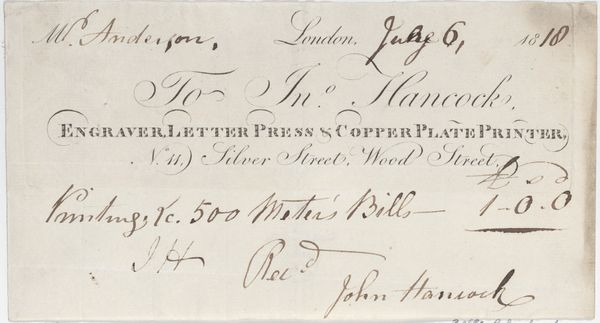 Mr. Anderson, London, July 6, 1818
To Jno. Hancock,
ENGRAVER, LETTER PRESS & COPPER PLATE PRINTER,
No. 11, Silver Street, Wood Street.
£ s d
Printing &c. 500 Bills — 1-0.0
J H Recd
John Hancock